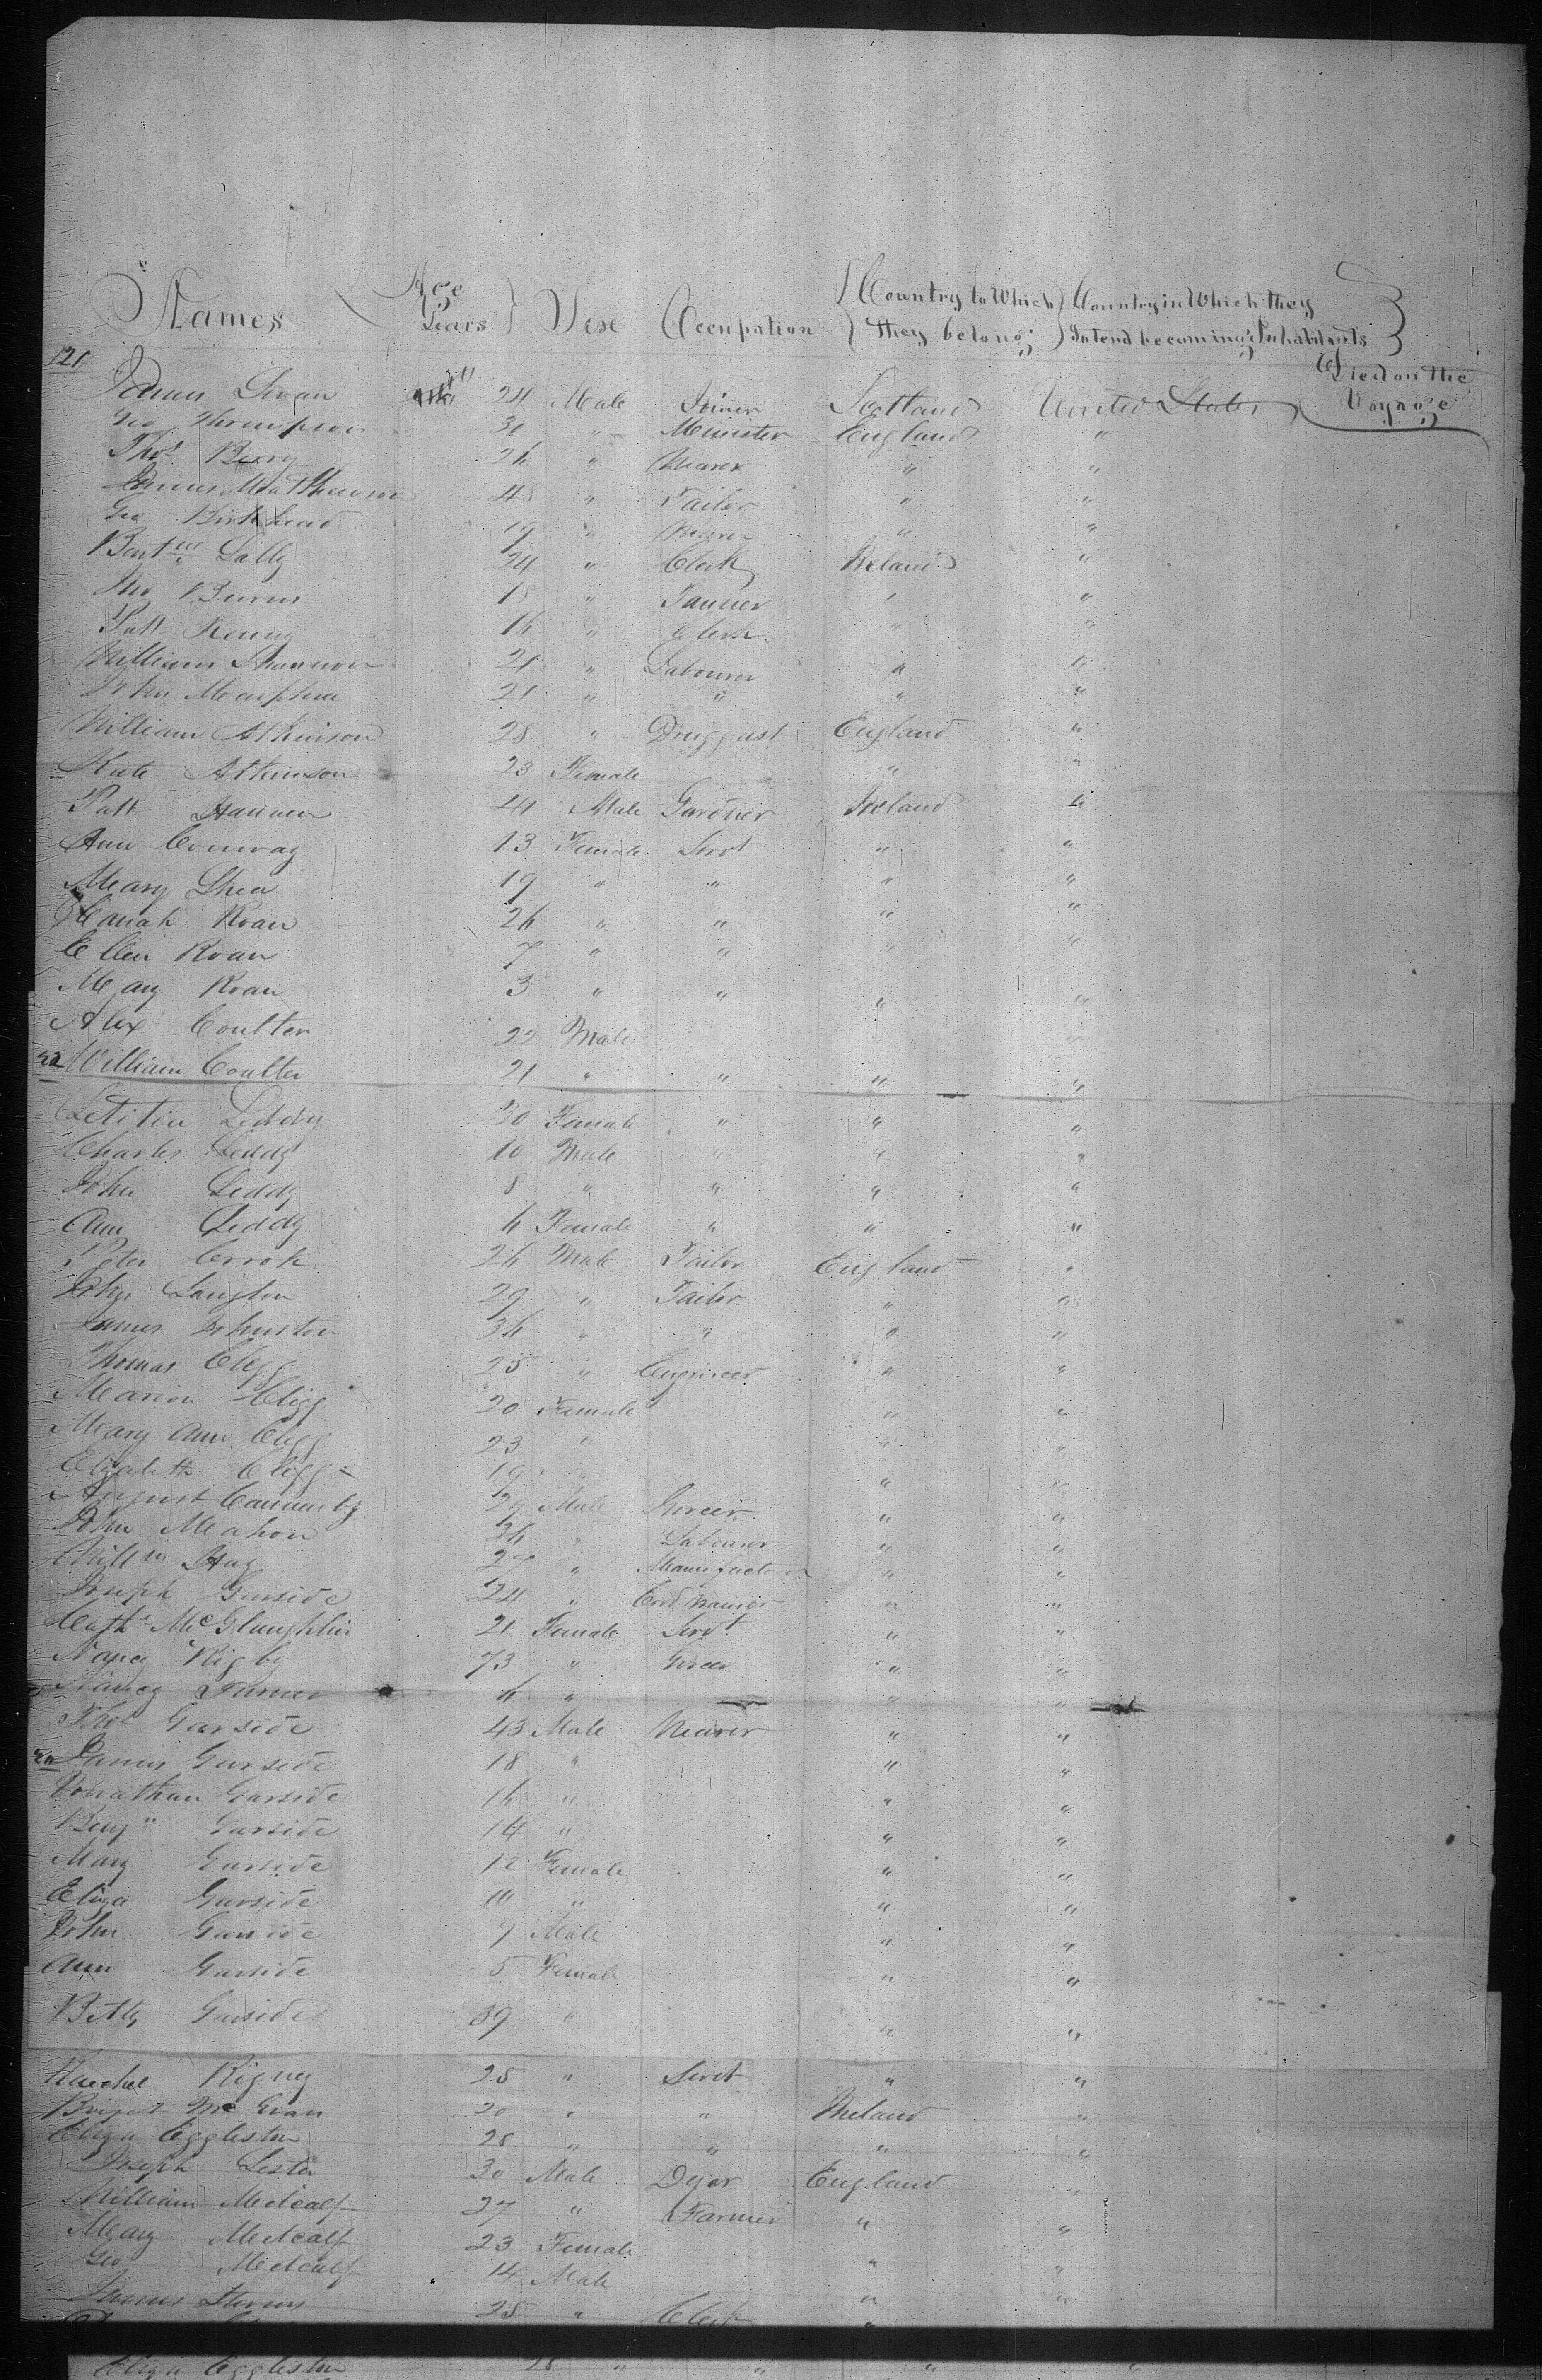 Names Age Years Sex Occupation Country to Which they belong Country in Which they Intend becoming Inhabitants Died on the Voyage
121
James Swan 24 Male Joiner Scotland United States
Geo Thompson 30 " Minister England "
Thos Berry 26 " Weaver " "
James Matthewson 4 " Tailor " "
Geo Birkhead 19 " Weaver " "
Bartw Lally 24 " Clerk Ireland "
Jno Burns 18 " Tanner " "
Patt Kenny 16 " Clerk " "
William Shannon 21 " Labourer " "
John 21 " " " "
William Atkinson 28 " Druggist England "
Kate Atkinson 23 Female " "
Patt Hannen 41 Male Gardner Ireland "
Ann Conway 13 Female Servt " "
Mary Shea 19 " " " "
Hanah Roan 26 " " " "
Ellen Roan 7 " " " "
Mary Roan 3 " " " "
Alex Coulter 22 Male " "
William Coulter 21 " " " "
Letitia Leddy 30 Female " " "
Charles Leddy 10 Male " " "
John Leddy 8 " " " "
Ann Leddy 6 Female " " "
Peter Crook 26 Male Tailor England "
John Langton 29 " Tailor " "
James Johnston 36 " " " "
Thomas Clegg 25 " Engineer " "
Marion Clegg 20 Female " "
Mary Ann Clegg 23 " " "
Elizabeth Clegg 19 " " "
August 29 Male Grocer " "
John Mahon 36 " Labourer " "
Willm Hay 27 " Manufacturer " "
Joseph Garside 24 " Cordwainer " "
Cathe McGlaughlin 21 Female Servt " "
Nancy Rigby 73 " Grocer " "
Nancy Turner 6 " " "
Thos Garside 43 Male Weaver " "
James Garside 18 " " "
Jonathan Garside 16 " " "
Benjn Garside 14 " " "
Mary Garside 12 Female " "
Eliza Garside 10 " " "
John Garside 7 Male " "
Ann Garside 5 Female " "
Betty Garside 39 " " "
Rachel Rigney 25 " Servt " "
Bridget McGran 20 " " Ireland "
Eliza Eggleston 28 " " " "
Joseph Lester 30 Male Dyer England "
William Metcalf 27 " Farmer " "
Mary Metcalf 23 Female " "
Geo Metcalf 14 Male " "
James Stevens 25 " Clerk " "
Eliza Eggleston 28 " " " "